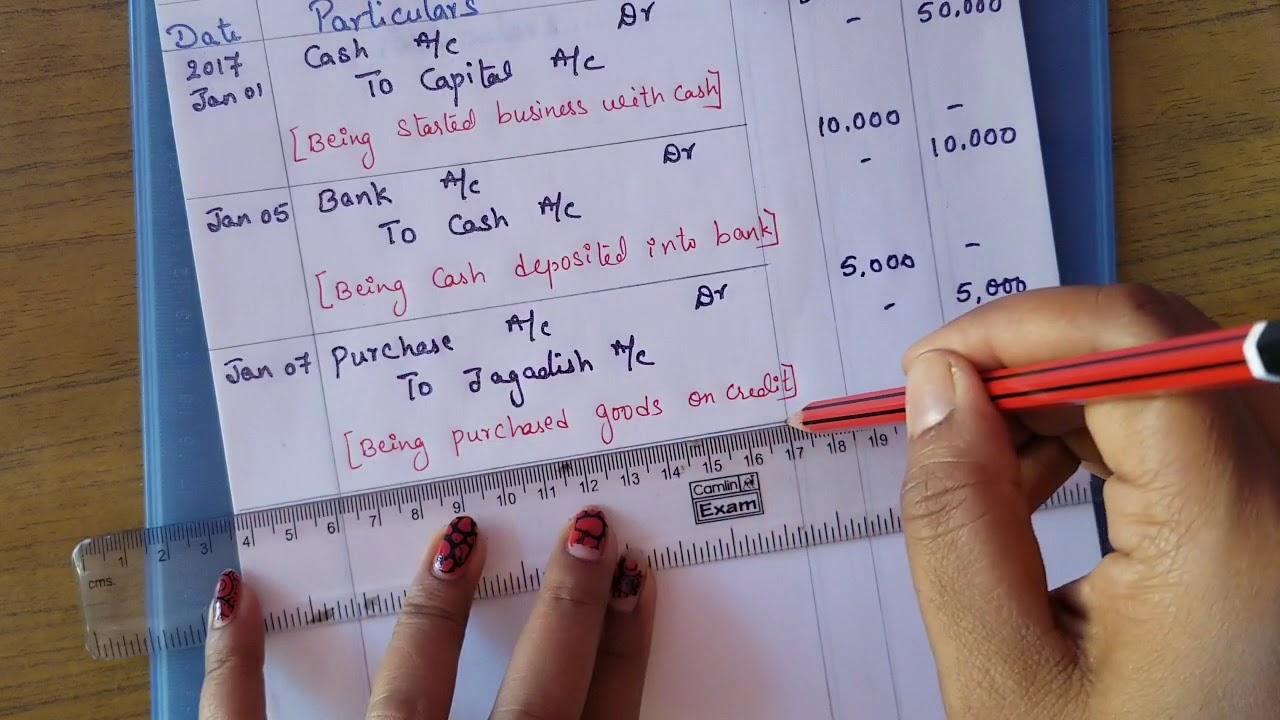 Date Particulars
2017 Cash A/c Dr - 50,000
Jan 01 To Capital A/c
[Being started business with cash]
Jan 05 Bank A/c Dr 10,000 -
To Cash A/c - 10,000
[Being Cash deposited into bank]
Jan 07 Purchase A/c Dr 5,000 -
To Jagadish A/c - 5,000
[Being purchased goods on credit]
1 2 3 4 5 6 7 8 9 10 11 12 13 14 15 16 17 18 19
cms.
Camlin
Exam